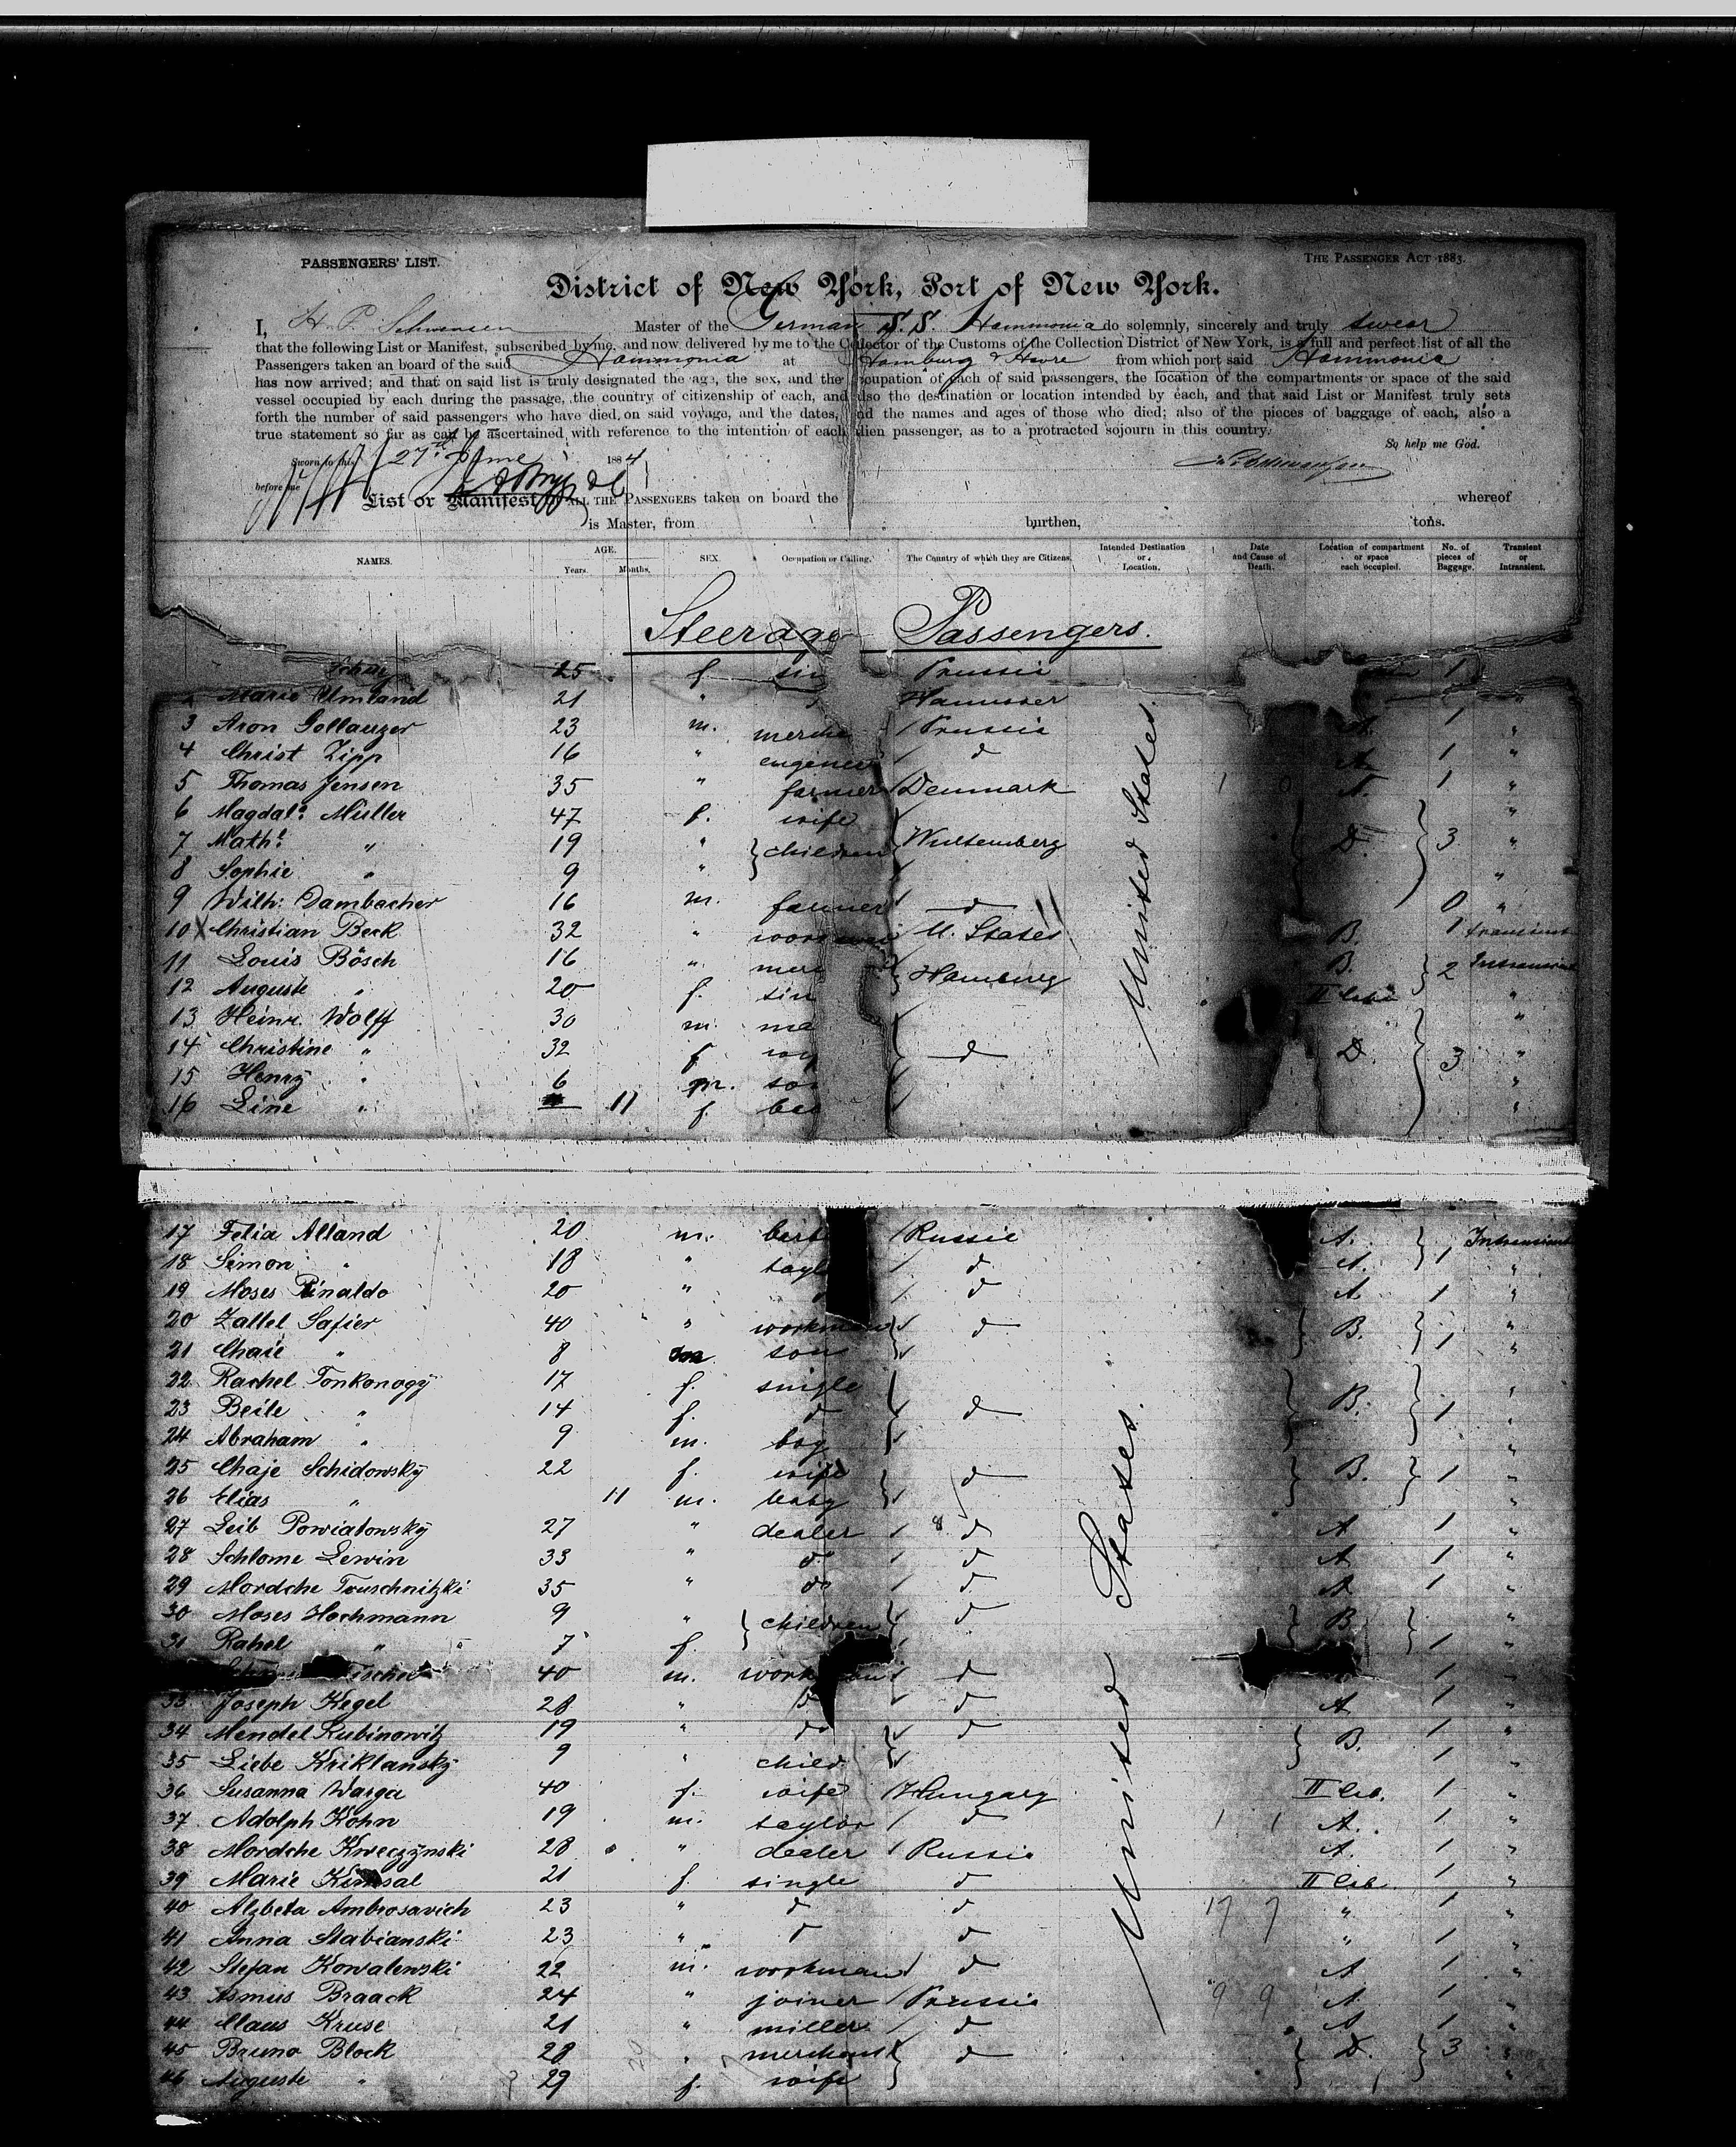 PASSENGERS' LIST. THE PASSENGER ACT 1883.
District of New York, Port of New York.
I, H. P. Schwensen Master of the German S.S. Hammonia do solemnly, sincerely and truly swear
that the following List or Manifest, subscribed by me, and now delivered by me to the Collector of the Customs of the Collection District of New York, is a full and perfect list of all the
Passengers taken on board of the said Hammonia at Hamburg & Havre from which port said Hammonia
has now arrived; and that on said list is truly designated the age, the sex, and the occupation of each of said passengers, the location of the compartments or space of the said
vessel occupied by each during the passage, the country of citizenship of each, and also the destination or location intended by each, and that said List or Manifest truly sets
forth the number of said passengers who have died on said voyage, and the dates, and the names and ages of those who died; also of the pieces of baggage of each, also a
true statement so far as can be ascertained with reference to the intention of each alien passenger, as to a protracted sojourn in this country.
So help me God.
Sworn to this 27th June 1884
before me
List or Manifest OF ALL THE PASSENGERS taken on board the whereof
is Master, from burthen, tons.
NAMES. AGE. Years. Months. SEX. Occupation or Calling. The Country of which they are Citizens. Intended Destination or Location. Date and Cause of Death. Location of compartment or space each occupied. No. of pieces of Baggage. Transient or Intransient.
Steerage Passengers.
25 f Prussia 1
2 Marie Umland 21 " Hannover "
3 Aron Gollanzer 23 m. Prussia A. 1 "
4 Christ Zipp 16 " engeneer d A. 1 "
5 Thomas Jensen 35 farmer Denmark 1 0 A. 1 "
6 Magdal: Müller 47 f. wife "
7 Math: " 19 " children Wurtemberg D. 3 "
8 Sophie " 9 " "
9 Wilh: Dambacher 16 m. farmer d 0 "
10 X Christian Beck 32 " U. States B. 1 transient
11 Louis Bösch 16 " Hamburg B. 2 Intransient
12 Auguste " 20 f. II Cab. "
13 Heinr. Wolff 30 m. "
14 Christine " 32 f d D. 3 "
15 Henry " 6 m. "
16 Line " 11 f. "
United States.
17 Felix Alland 20 m. Russia A. 1 Intransient
18 Simon " 18 " d A. "
19 Moses Rinaldo 20 " d A 1 "
20 Zallel Safier 40 " workman d B. "
21 Chaie " 8 son 1 "
22 Rachel Tonkonogy 17 f. single "
23 Beile " 14 f. d d B. 1 "
24 Abraham " 9 m. boy "
25 Chaje Schidowsky 22 f. wife d B. 1 "
26 Elias " 11 m. baby "
27 Leib Powiatowsky 27 " dealer d A 1 "
28 Schlome Lewin 33 " d d A 1 "
29 Mordche Truschnitzki 35 " d d A 1 "
30 Moses Hochmann 9 " children d B. "
31 Rahel " 7 f. 1 "
40 m. workman d 1 "
33 Joseph Kegel 28 " d d A 1 "
34 Mendel Rubinowitz 19 " d d B. 1 "
35 Liebe Kriklansky 9 " child 1 "
36 Susanna Warga 40 f. wife Hungary II Cab. 1 "
37 Adolph Kohn 19 m. taylor d 1 1 A. 1 "
38 Mordche Kweczynski 28 " dealer Russia A. 1 "
39 Marie 21 f. single d II Cab. 1 "
40 Alzbeta Ambrosavich 23 " d d 17 7 " 1 "
41 Anna Stabianski 23 " d d " 1 "
42 Stefan Kowalewski 22 m. workman d A 1 "
43 Asmus Braack 24 " joiner Prussia 9 9 A. 1 "
44 Claus Kruse 21 " miller d A 1 "
45 Bruno Block 28 " merchant d D. 3 "
46 Auguste " 29 f. wife "
United States.